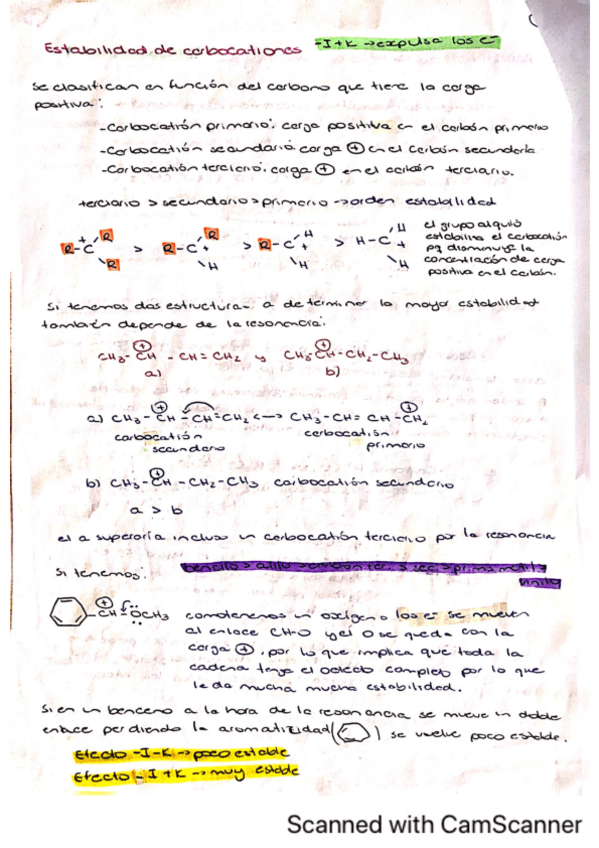 Estabilidad de carbocationes -I+K → expulsa los e-
Se clasifican en función del carbono que tiene la carga
positiva:
-Carbocatión primario: carga positiva en el carbón primario
-Carbocatión secundario: carga ⊕ en el carbón secundario
-Carbocatión terciario: carga ⊕ en el carbón terciario.
terciario > secundario > primario → orden estabilidad
R-C+ R R > R-C+ R H > R-C+ H H > H-C+ H H
el grupo alquilo
estabiliza el carbocatión
pq disminuye la
concentración de carga
positiva en el carbón.
Si tenemos dos estructuras a determinar la mayor estabilidad
también depende de la resonancia:
CH3-CH⊕-CH=CH2 y CH3-CH⊕-CH2-CH3
a) b)
a) CH3-CH⊕-CH=CH2 <-> CH3-CH=CH-CH2⊕
carbocatión carbocatión
secundario primario
b) CH3-CH⊕-CH2-CH3 carbocatión secundario
a > b
el a superaría incluso un carbocatión terciario por la resonancia
Si tenemos: bencilo > alilo > carbón ter. > sec > prim > metilo
vinilo
CH⊕-OCH3 como tenemos un oxígeno los e- se mueven
al enlace CH-O y el O se queda con la
carga ⊕, por lo que implica que toda la
cadena tenga el octeto completo por lo que
le da mucha mucha estabilidad.
Si en un benceno a la hora de la resonancia se mueve un doble
enlace perdiendo la aromaticidad ( ) se vuelve poco estable.
Efecto -I-K → poco estable
Efecto -I+K → muy estable
Scanned with CamScanner